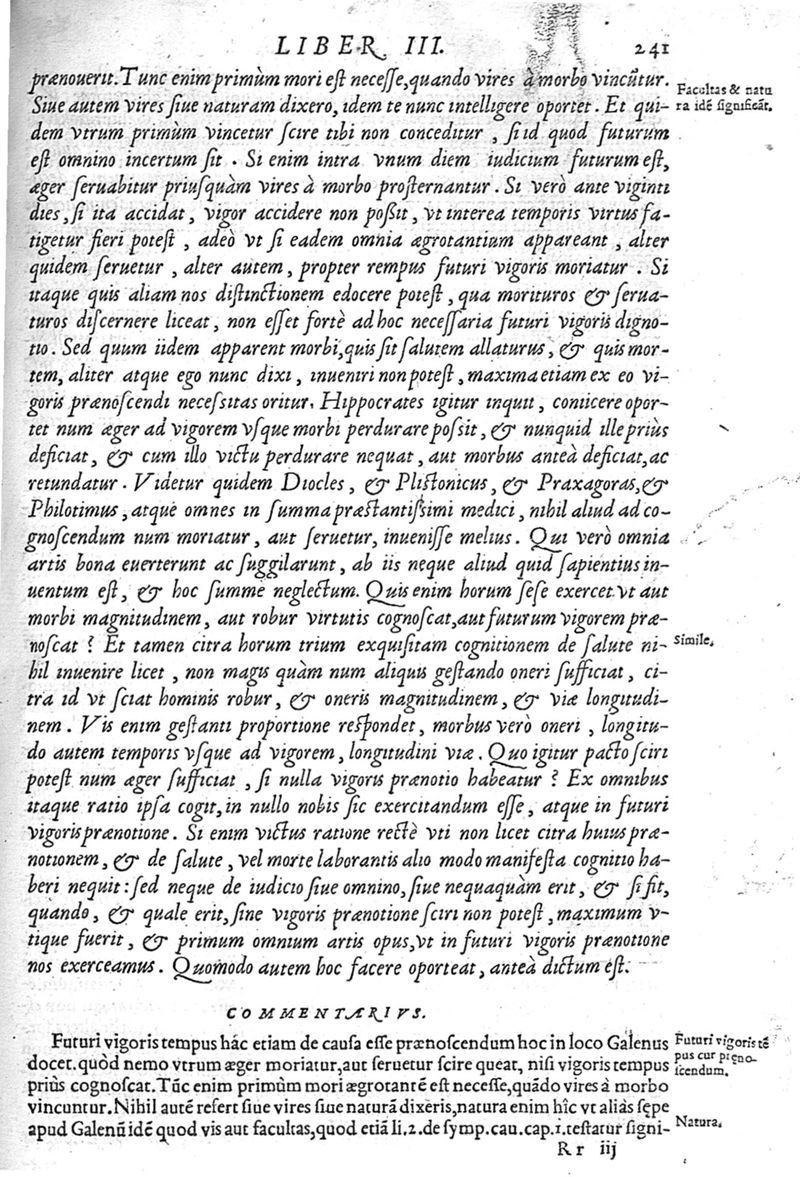 LIBER III. 241
prænouerit. Tunc enim primùm mori est necesse, quando vires à morbo vincũtur.
Facultas & natu
ra idẽ significãt.
Siue autem vires siue naturam dixero, idem te nunc intelligere oportet. Et qui-
dem vtrum primùm vincetur scire tibi non conceditur, si id quod futurum
est omnino incertum sit. Si enim intra vnum diem iudicium futurum est,
æger seruabitur priusquàm vires à morbo prosternantur. Si verò ante viginti
dies, si ita accidat, vigor accidere non poßit, vt interea temporis virtus fa-
tigetur fieri potest, adeò vt si eadem omnia ægrotantium appareant, alter
quidem seruetur, alter autem, propter rempus futuri vigoris moriatur. Si
itaque quis aliam nos distinctionem edocere potest, qua morituros & serua-
turos discernere liceat, non esset fortè ad hoc necessaria futuri vigoris digno-
tio. Sed quum iidem apparent morbi, quis sit salutem allaturus, & quis mor-
tem, aliter atque ego nunc dixi, inueniri non potest, maxima etiam ex eo vi-
goris prænoscendi necessitas oritur. Hippocrates igitur inquit, coniicere opor-
tet num æger ad vigorem vsque morbi perdurare possit, & nunquid ille priùs
deficiat, & cum illo victu perdurare nequat, aut morbus anteà deficiat, ac
retundatur. Videtur quidem Diocles, & Plistonicus, & Praxagoras, &
Philotimus, atque omnes in summa præstantißimi medici, nihil aliud ad co-
gnoscendum num moriatur, aut seruetur, inuenisse melius. Qui verò omnia
artis bona euerterunt ac suggilarunt, ab iis neque aliud quid sapientius in-
uentum est, & hoc summe neglectum. Quis enim horum sese exercet vt aut
morbi magnitudinem, aut robur virtutis cognoscat, aut futurum vigorem præ-
noscat? Et tamen citra horum trium exquisitam cognitionem de salute ni-
Simile.
hil inuenire licet, non magis quàm num aliquis gestando oneri sufficiat, ci-
tra id vt sciat hominis robur, & oneris magnitudinem, & viæ longitudi-
nem. Vis enim gestanti proportione respondet, morbus verò oneri, longitu-
do autem temporis vsque ad vigorem, longitudini viæ. Quo igitur pacto sciri
potest num æger sufficiat, si nulla vigoris prænotio habeatur? Ex omnibus
itaque ratio ipsa cogit, in nullo nobis sic exercitandum esse, atque in futuri
vigoris prænotione. Si enim victus ratione rectè vti non licet citra huius præ-
notionem, & de salute, vel morte laborantis alio modo manifesta cognitio ha-
beri nequit: sed neque de iudicio siue omnino, siue nequaquàm erit, & si sit,
quando, & quale erit, sine vigoris prænotione sciri non potest, maximum v-
tique fuerit, & primum omnium artis opus, vt in futuri vigoris prænotione
nos exerceamus. Quomodo autem hoc facere oporteat, anteà dictum est.
COMMENTARIVS.
Futuri vigoris tempus hác etiam de causa esse prænoscendum hoc in loco Galenus
Futuri vigoris tẽ
pus cur pręno-
scendum.
docet. quòd nemo vtrum æger moriatur, aut seruetur scire queat, nisi vigoris tempus
priùs cognoscat. Tũc enim primùm mori ægrotantẽ est necesse, quãdo vires à morbo
vincuntur. Nihil autẽ refert siue vires siue naturã dixeris, natura enim hîc vt aliàs sępe
Natura.
apud Galenũ idẽ quod vis aut facultas, quod etiã li. 2. de symp. cau. cap. 1. testatur signi-
Rr iij